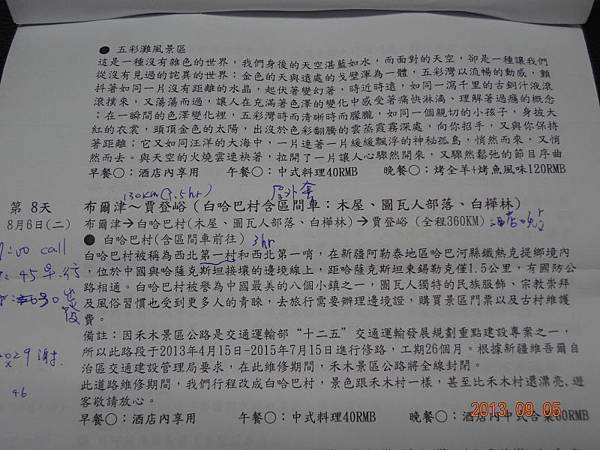 ● 五彩灘風景區
這是一種沒有雜色的世界，我們身後的天空湛藍如水，而面對的天空，卻是一種讓我們
從沒有見過的詫異的世界：金色的天與遠處的戈壁渾為一體，五彩灣以流暢的動感，顫
抖著如同一片沒有距離的水晶，起伏著變幻著，時近時遠，如同一瀉千里的古銅汁液滾
滾撲來，又蕩蕩而過，讓人在充滿著色澤的變化中感受著痛快淋漓，理解著過癮的概念
；在一瞬間的色澤變化裡，五彩灣時而清晰時而朦朧，如同一個親切的小孩子，身披大
紅的衣裳，頭頂金色的太陽，出沒於色彩翻騰的雲蒸霞霧深處，向你招手，又與你保持
著距離；它又如同汪洋的大海中，一片連著一片緩緩飄浮的神秘孤島，悄然而來，又悄
然而去。與天空的火燒雲連袂著，拉開了一片讓人心驟然開來，又驟然鬆弛的節目序曲
早餐○：酒店內享用 午餐○：中式料理40RMB 晚餐○：烤全羊+烤魚風味120RMB
130KM(1.5hr)
第 8天 布爾津～賈登峪(白哈巴村含區間車：木屋、圖瓦人部落、白樺林)
8月6日(二) 布爾津→白哈巴村(木屋、圖瓦人部落、白樺林)→賈登峪 (全程360KM)
● 白哈巴村(含區間車前往) 3hr
白哈巴村被稱為西北第一村和西北第一哨，在新疆阿勒泰地區哈巴河縣鐵熱克提鄉境內
，位於中國與哈薩克斯坦接壤的邊境線上，距哈薩克斯坦東錫勒克僅1.5公里，有國防公
路相通。白哈巴村被譽為中國最美的八個小鎮之一，圖瓦人獨特的民族服飾、宗教崇拜
及風俗習慣也受到更多人的青睞，去旅行需要辦理邊境證，購買景區門票以及古村維護
費。
備註：因禾木景區公路是交通運輸部“十二五”交通運輸發展規劃重點建設專案之一，
所以此路段于2013年4月15日-2015年7月15日進行修路，工期26個月。根據新疆維吾爾自
治區交通建設管理局要求，在此維修期間，禾木景區公路將全線封閉。
此道路維修期間，我們行程改成白哈巴村，景色跟禾木村一樣，甚至比禾木村還漂亮，遊
客敬請放心。
早餐○：酒店內享用 午餐○：中式料理40RMB 晚餐○：酒店內中式合菜60RMB
2013.09.05